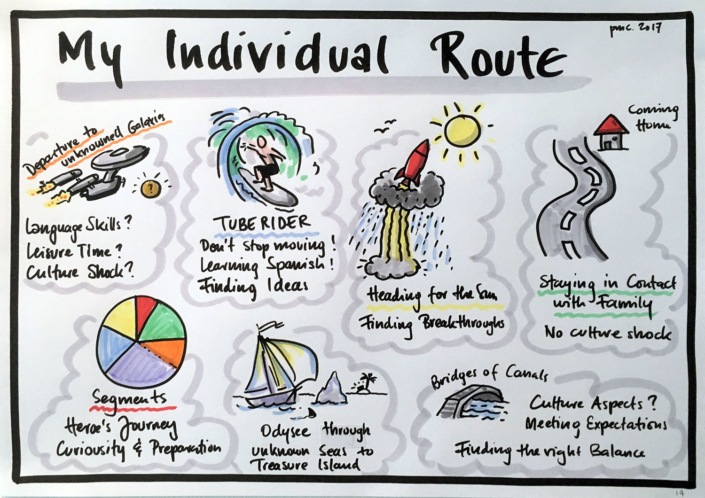 My Individual Route
pmc. 2017
Departure to
unknowned Galaxis
?
Language Skills?
Leisure Time?
Culture Shock?
TUBE RIDER
Don't stop moving!
Learning Spanish!
Finding Ideas
Heading for the Sun
Finding Breakthroughs
Coming
Home
Staying in Contact
with Family
No culture shock
Segments
Heroe's Journey
Curiousity & Preparation
Odysee through
unknown Seas to
Treasure Island
Bridges of Canals
Culture Aspects?
Meeting Expectations
Finding the right Balance
19